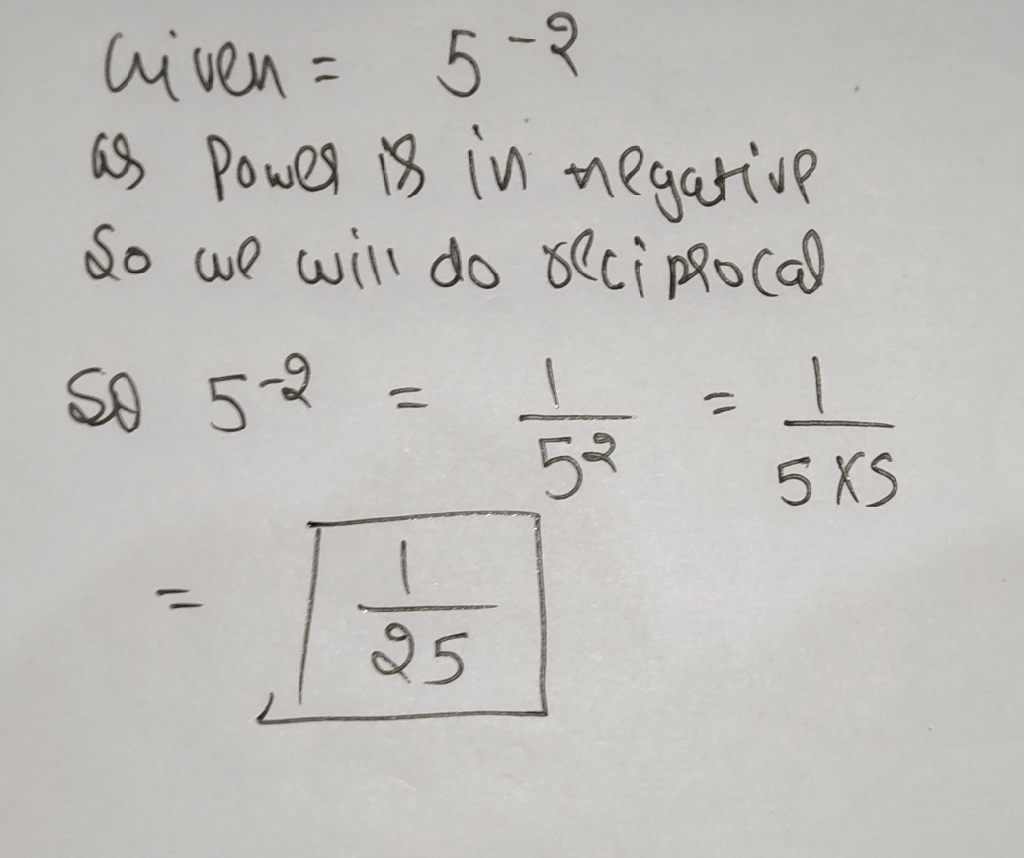 Given = 5⁻²
as Power is in negative
So we will do reciprocal
So 5⁻² = 1/5² = 1/5×5
= 1/25